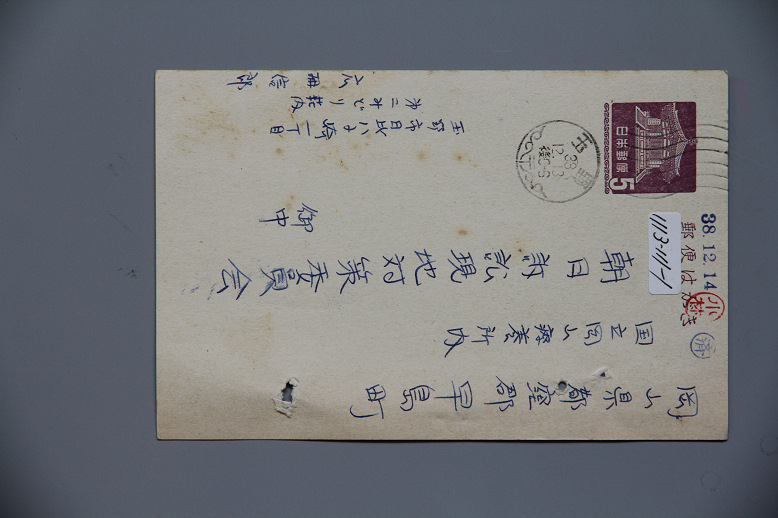 郵便はがき
日本郵便
5
玉野
38
12.13
後0-6
38.12.14
小林
1113-111-1
岡山県都窪郡早島町
国立岡山療養所内
朝日訴訟現地対策委員会
御中
玉野市日比八丁目
第二みどり荘内